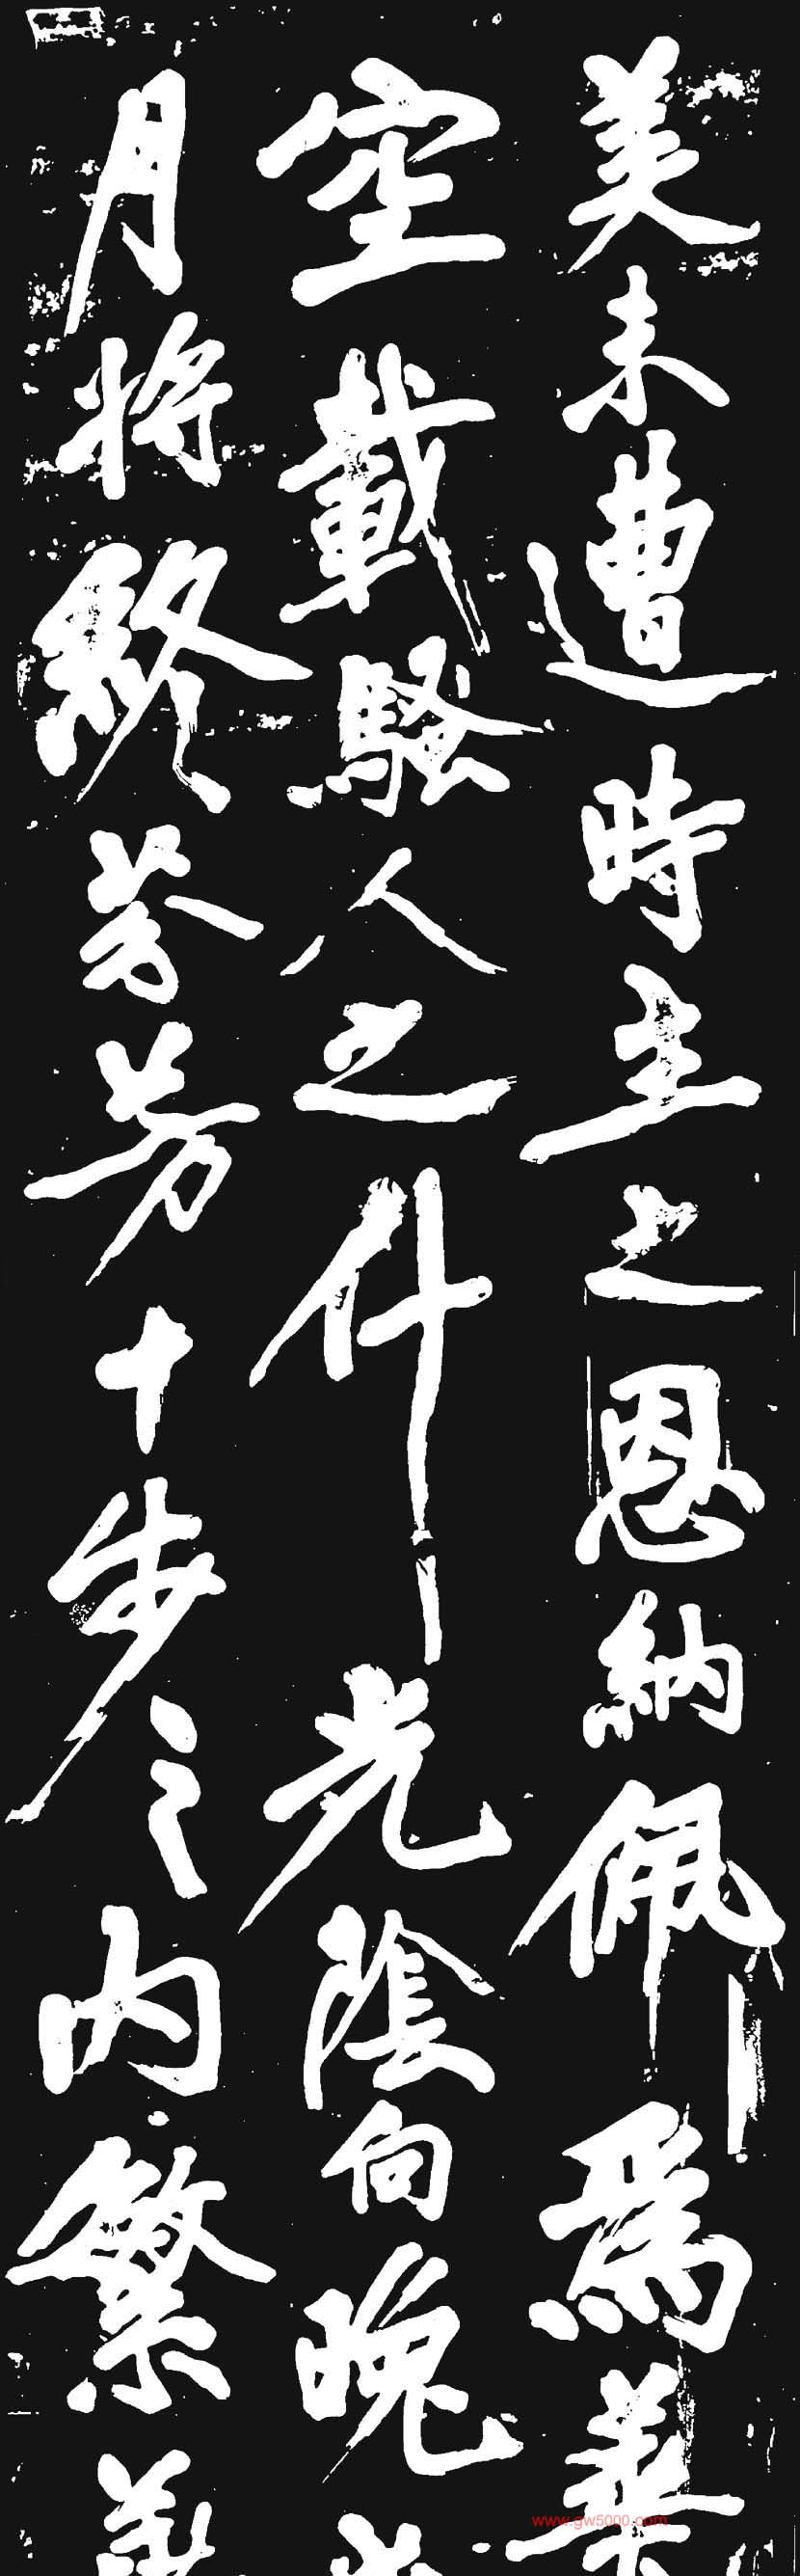 美未遭時主之恩納佩為
空載騷人之什光陰向晚
月將終芬芳十步之內繁
www.gw5000.com